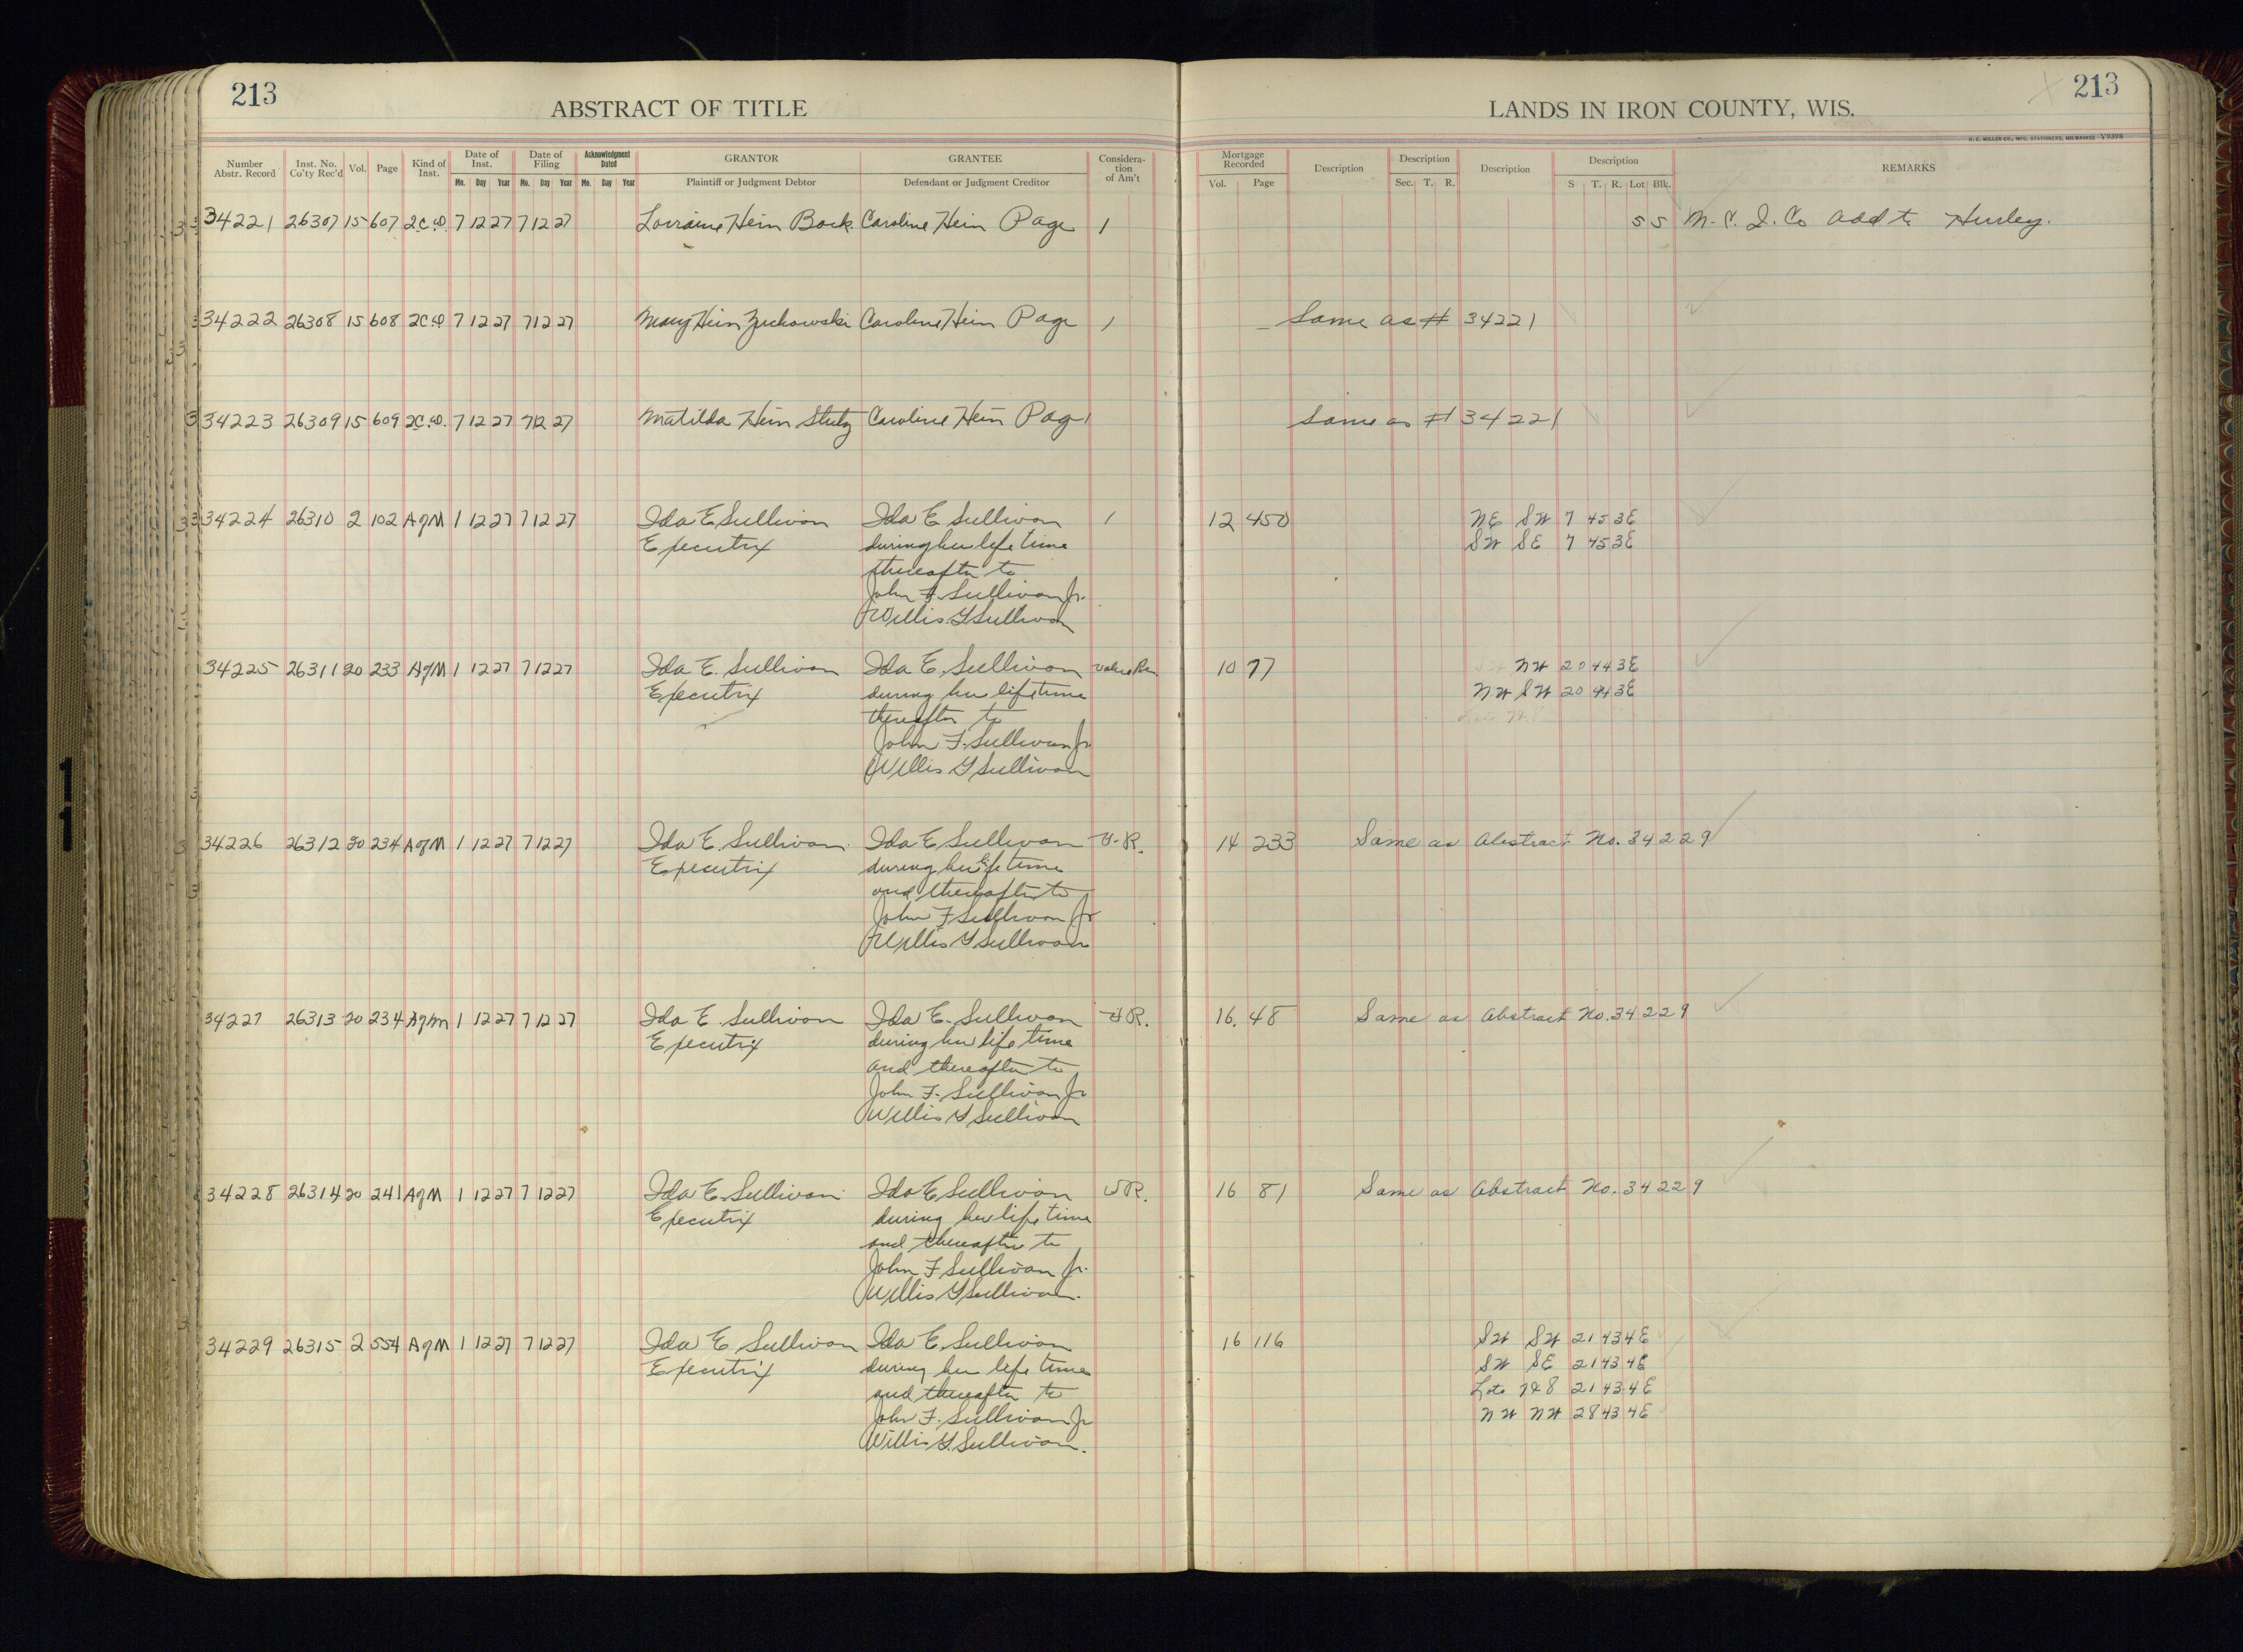 213
ABSTRACT OF TITLE
LANDS IN IRON COUNTY, WIS.
213
H. C. MILLER CO., MFG. STATIONERS, MILWAUKEE Y9398
Number Abstr. Record Inst. No. Co'ty Rec'd Vol. Page Kind of Inst. Date of Inst. Date of Filing Acknowledgment Dated GRANTOR GRANTEE Considera-tion of Am't Mortgage Recorded Description Description Description Description REMARKS
Mo. Day Year Mo. Day Year Mo. Day Year Plaintiff or Judgment Debtor Defendant or Judgment Creditor Vol. Page Sec. T. R. S T. R. Lot Blk.
34221 26307 15 607 2C.D. 7 12 27 7 12 27 Lorraine Hein Bock Caroline Hein Page 1 5 5 M. C. I. Co Add to Hurley.
34222 26308 15 608 2C.D 7 12 27 7 12 27 Mary Hein Zuchowski Caroline Hein Page 1 Same as # 34221
34223 26309 15 609 2C.D. 7 12 27 7 12 27 Matilda Hein Stutz Caroline Hein Page 1 Same as # 34221
34224 26310 2 102 AgM 1 12 27 7 12 27 Ida E Sullivan Ida E Sullivan 1 12 450 NE SW 7 45 3E
Executrix during her life time SW SE 7 45 3E
thereafter to
John F. Sullivan Jr.
Willis G Sullivan
34225 26311 20 233 AgM 1 12 27 7 12 27 Ida E. Sullivan Ida E. Sullivan value Re. 10 77 SW NW 20 44 3E
Executrix during her life time NW SW 20 44 3E
thereafter to Lots 7&8
John F. Sullivan Jr
Willis G Sullivan
34226 26312 20 234 AgM 1 12 27 7 12 27 Ida E. Sullivan Ida E Sullivan V.R. 14 233 Same as Abstract No. 34229
Executrix during her life time
and thereafter to
John F Sullivan Jr
Willis G Sullivan
34227 26313 20 234 Agm 1 12 27 7 12 27 Ida E. Sullivan Ida E. Sullivan V R. 16. 48 Same as Abstract No. 34229
Executrix during her life time
and thereafter to
John F. Sullivan Jr
Willis G Sullivan
34228 26314 20 241 AgM 1 12 27 7 12 27 Ida E. Sullivan Ida E Sullivan V R. 16 81 Same as Abstract No. 34229
Executrix during her life time
and thereafter to
John F Sullivan Jr.
Willis G Sullivan.
34229 26315 2 554 AgM 1 12 27 7 12 27 Ida E Sullivan Ida E. Sullivan 16 116 SW SW 21 43 4E
Executrix during her life time SW SE 21 43 4E
and thereafter to Lots 7&8 21 43 4E
John F. Sullivan Jr NW NW 28 43 4E
Willis G. Sullivan.